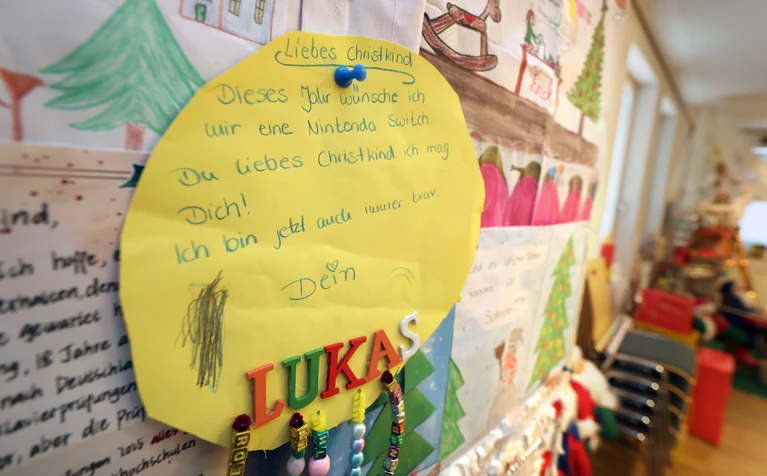 Liebes Christkind
Dieses Jahr wünsche ich
mir eine Nintendo Switch.
Du liebes Christkind ich mag
Dich!
Ich bin jetzt auch immer brav.
Dein
LUKAS
ind,
Ich hoffe, e
gewartet h
ng, 18 Jahre a
nach Deutschla
lavierprüfungen
er, aber die Prü
2015 alles
hochschulen